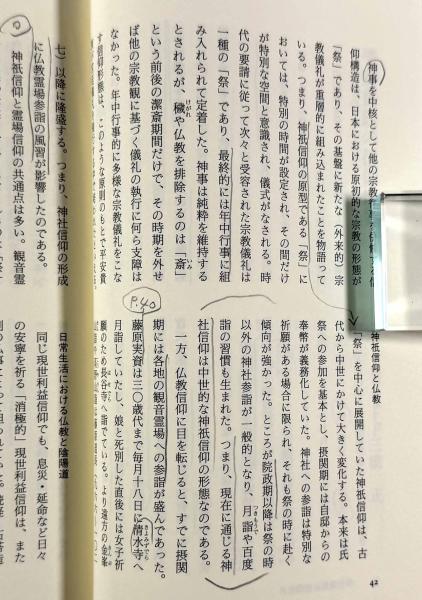 42
神祇信仰と仏教
「祭」を中心に展開していた神祇信仰は、古
代から中世にかけて大きく変化する。本来は氏
祭への参加を基本とし、摂関期には自邸からの
奉幣が義務化していた。神社への参詣は特別な
祈願がある場合に限られ、それも祭の時に赴く
傾向が強かった。ところが院政期以降は祭の時
以外の神社参詣が一般的となり、月詣や百度
つきもうで
詣の習慣も生まれた。つまり、現在に通じる神
社信仰は中世的な神祇信仰の形態なのである。
一方、仏教信仰に目を転じると、すでに摂関
期には各地の観音霊場への参詣が盛んであった。
P.40
藤原実資は三〇歳代まで毎月十八日に清水寺へ
きよみずでら
月詣していたし、娘と死別した直後には女子祈
願のため長谷寺へ詣でている。より遠方の金峯
日常生活における仏教と陰陽道
同じ現世利益信仰でも、息災・延命など日々
の安寧を祈る「消極的」現世利益信仰は、また
神事を中核として他の宗教
仰構造は、日本における原初的な宗教の形態が
「祭」であり、その基盤に新たな「外来的」宗
教儀礼が重層的に組み込まれたことを物語って
いる。つまり、神祇信仰の原型である「祭」に
おいては、特別の時間が設定され、その間だけ
が特別な空間と意識され、儀式がなされる。時
代の要請に従って次々と受容された宗教儀礼は
一種の「祭」であり、最終的には年中行事に組
み入れられて定着した。神事は純粋を維持する
とされるが、穢や仏教を排除するのは「斎」
けがれ
いみ
という前後の潔斎期間だけで、その時期を外せ
ば他の宗教観に基づく儀礼の執行に何ら支障は
なかった。年中行事的に多様な宗教儀礼をこな
す信仰形態は、このような原則のもとで平安貴
七）以降に隆盛する。つまり、神社信仰の形成
に仏教霊場参詣の風習が影響したのである。
神祇信仰と霊場信仰の共通点は多い。観音霊